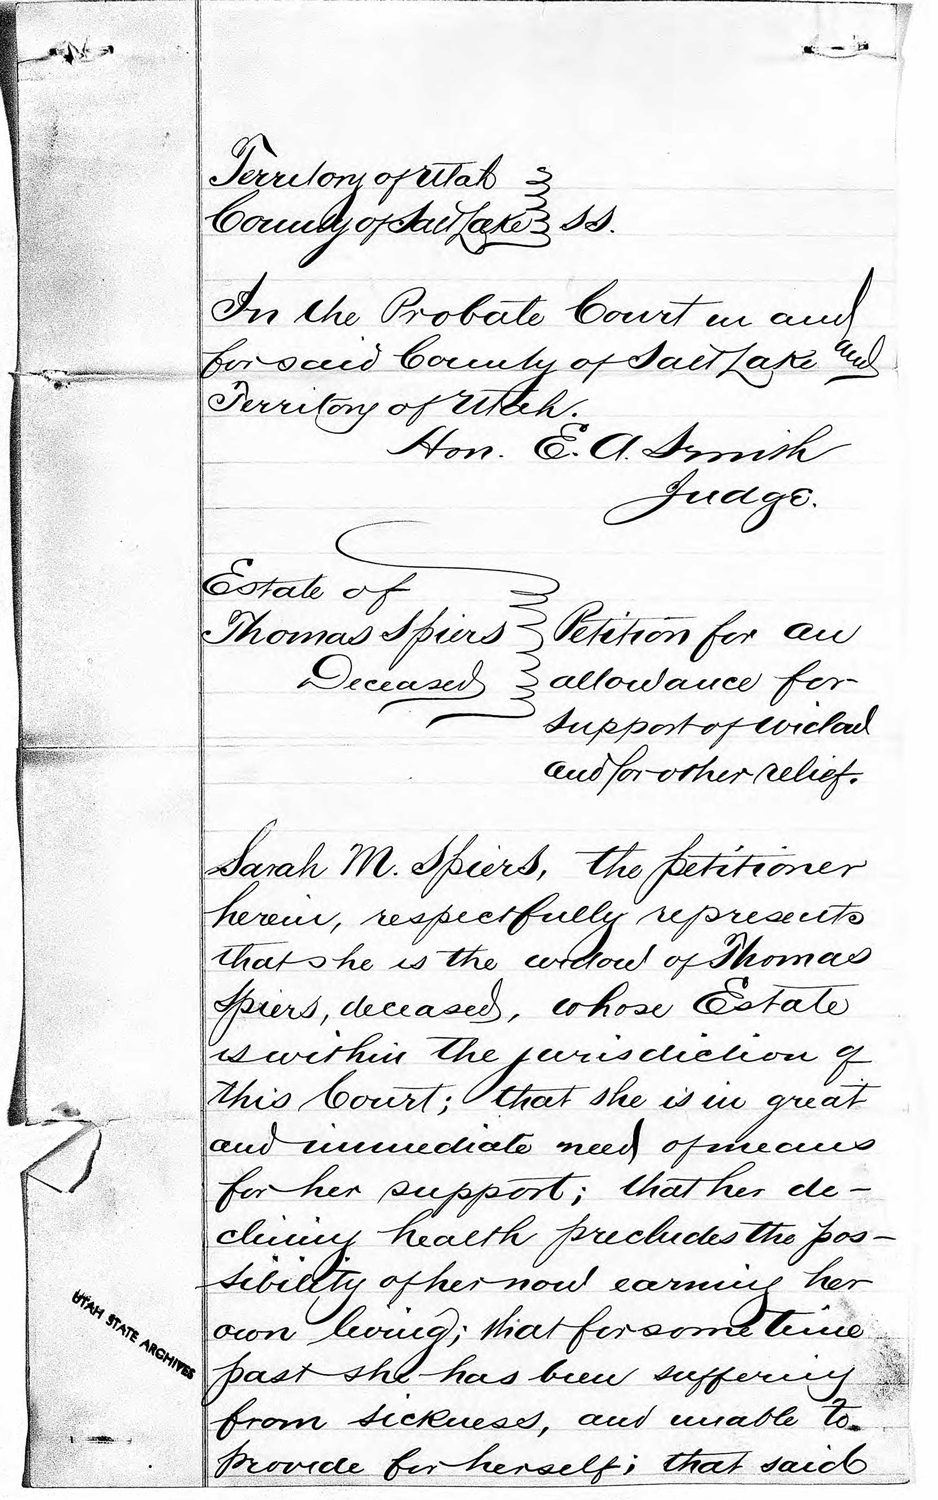 Territory of Utah
County of Salt Lake } SS.
In the Probate Court in and
for said County of Salt Lake and
Territory of Utah.
Hon. E. A. Smith
Judge.
Estate of
Thomas Spiers
Deceased
Petition for an
allowance for
support of widow
and for other relief.
Sarah M. Spiers, the petitioner
herein, respectfully represents
that she is the widow of Thomas
Spiers, deceased, whose Estate
is within the jurisdiction of
this Court; that she is in great
and immediate need of means
for her support; that her de-
clining health precludes the pos-
sibility of her now earning her
own living; that for some time
past she has been suffering
from sickness, and unable to
provide for herself; that said
UTAH STATE ARCHIVES